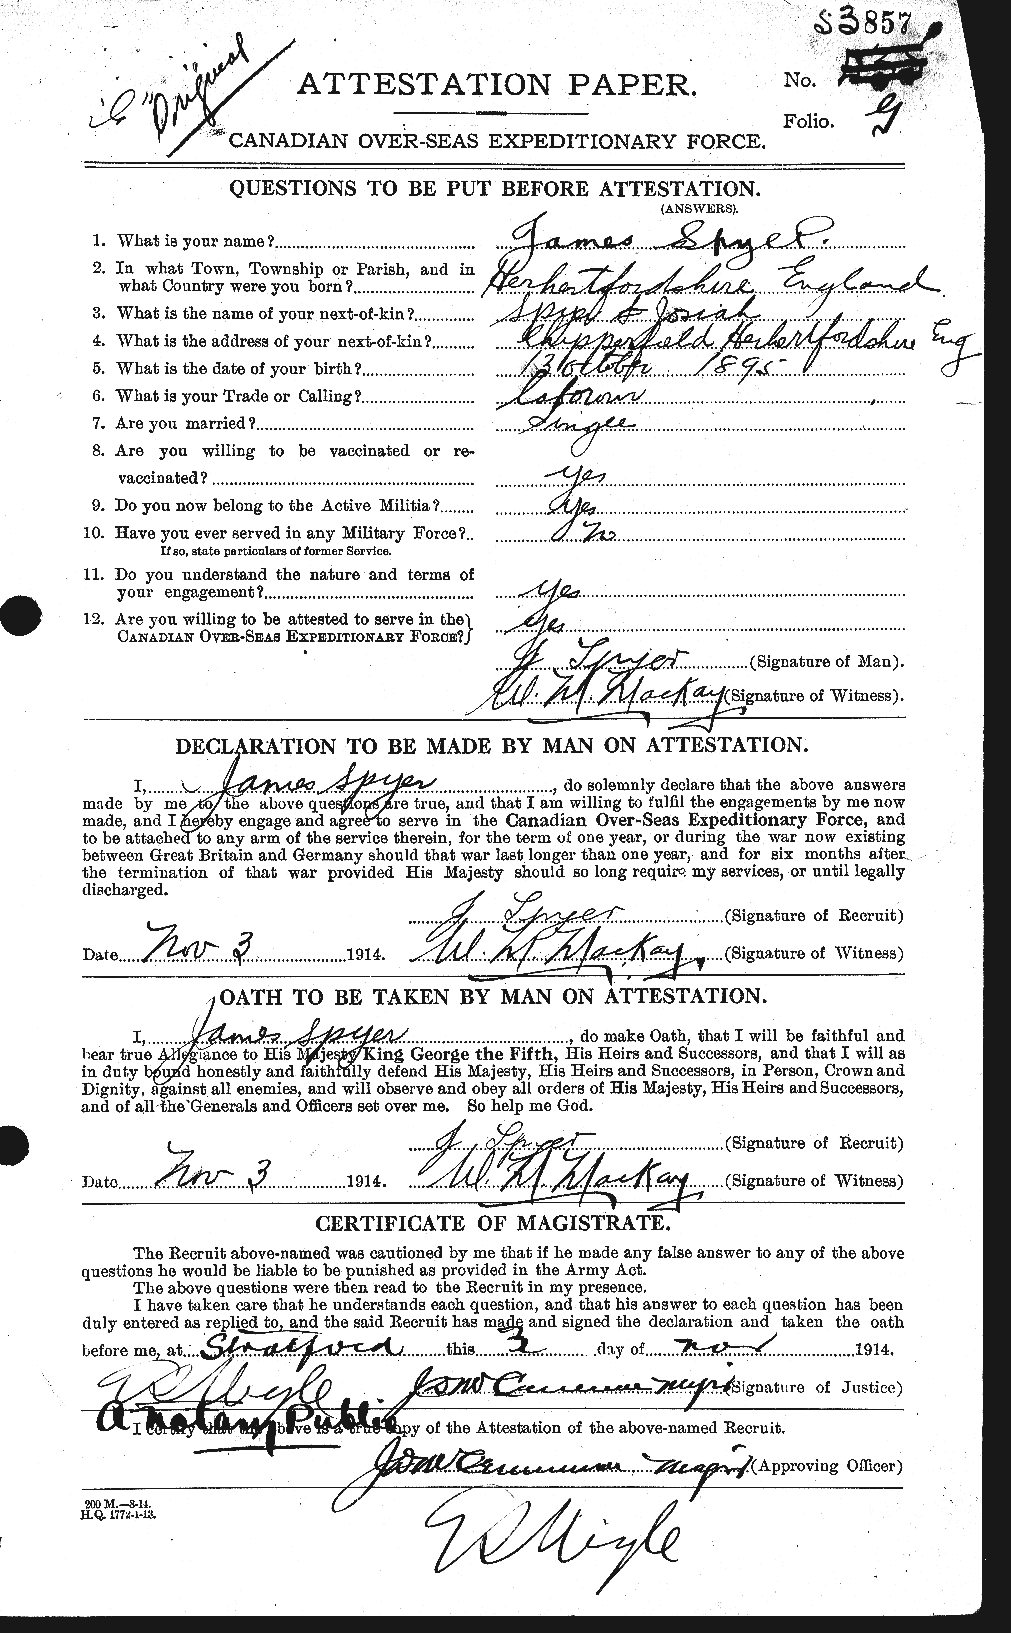 S3857
"Original"
ATTESTATION PAPER.
No.
Folio.
CANADIAN OVER-SEAS EXPEDITIONARY FORCE.
QUESTIONS TO BE PUT BEFORE ATTESTATION.
(ANSWERS).
1. What is your name? James Spyer.
2. In what Town, Township or Parish, and in
what Country were you born? Herhertfordshire England
3. What is the name of your next-of-kin? Spyer Josiah
4. What is the address of your next-of-kin? Chipperfield Herhertfordshire Eng
5. What is the date of your birth? 13 October 1895
6. What is your Trade or Calling? Labourer
7. Are you married? Single
8. Are you willing to be vaccinated or re-
vaccinated? Yes
9. Do you now belong to the Active Militia? Yes
10. Have you ever served in any Military Force? No
If so, state particulars of former Service.
11. Do you understand the nature and terms of
your engagement? Yes
12. Are you willing to be attested to serve in the
CANADIAN OVER-SEAS EXPEDITIONARY FORCE? Yes
J Spyer (Signature of Man).
W. M. MacKay (Signature of Witness).
DECLARATION TO BE MADE BY MAN ON ATTESTATION.
I, James Spyer, do solemnly declare that the above answers
made by me to the above questions are true, and that I am willing to fulfil the engagements by me now
made, and I hereby engage and agree to serve in the Canadian Over-Seas Expeditionary Force, and
to be attached to any arm of the service therein, for the term of one year, or during the war now existing
between Great Britain and Germany should that war last longer than one year, and for six months after
the termination of that war provided His Majesty should so long require my services, or until legally
discharged.
J Spyer (Signature of Recruit)
Date Nov 3 1914. W. M. MacKay, (Signature of Witness)
OATH TO BE TAKEN BY MAN ON ATTESTATION.
I, James Spyer, do make Oath, that I will be faithful and
bear true Allegiance to His Majesty King George the Fifth, His Heirs and Successors, and that I will as
in duty bound honestly and faithfully defend His Majesty, His Heirs and Successors, in Person, Crown and
Dignity, against all enemies, and will observe and obey all orders of His Majesty, His Heirs and Successors,
and of all the Generals and Officers set over me. So help me God.
J Spyer (Signature of Recruit)
Date Nov 3 1914. W. M. MacKay (Signature of Witness)
CERTIFICATE OF MAGISTRATE.
The Recruit above-named was cautioned by me that if he made any false answer to any of the above
questions he would be liable to be punished as provided in the Army Act.
The above questions were then read to the Recruit in my presence.
I have taken care that he understands each question, and that his answer to each question has been
duly entered as replied to, and the said Recruit has made and signed the declaration and taken the oath
before me, at Stratford this 3 day of Nov 1914.
(Signature of Justice)
A Notary Public
I certify that the above is a true copy of the Attestation of the above-named Recruit.
(Approving Officer)
200 M.—8-14.
H.Q. 1772-1-13.